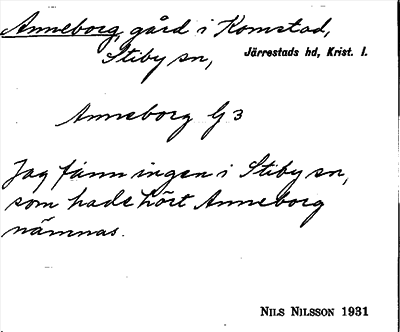 Anneborg, gård i Komstad,
Stiby sn, Järrestads hd, Krist. l.
Anneborg G 3
Jag fann ingen i Stiby sn,
som hade hört Anneborg
nämnas.
NILS NILSSON 1931